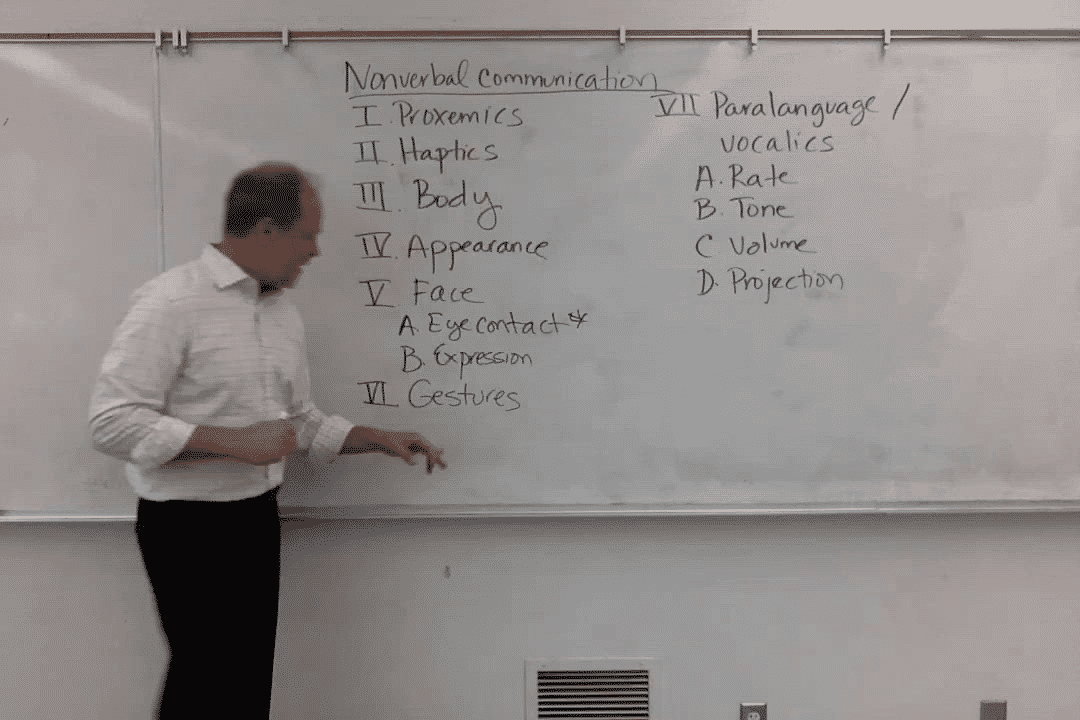 Nonverbal Communication
I. Proxemics
II. Haptics
III. Body
IV. Appearance
V Face
A. Eye contact*
B. Expression
VI Gestures
VII Paralanguage /
vocalics
A. Rate
B. Tone
C Volume
D. Projection